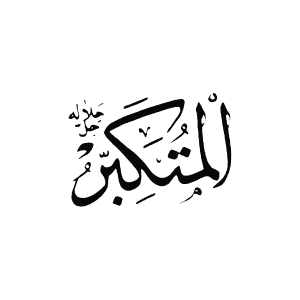 الْمُتَكَبِّرُ
جل جلاله